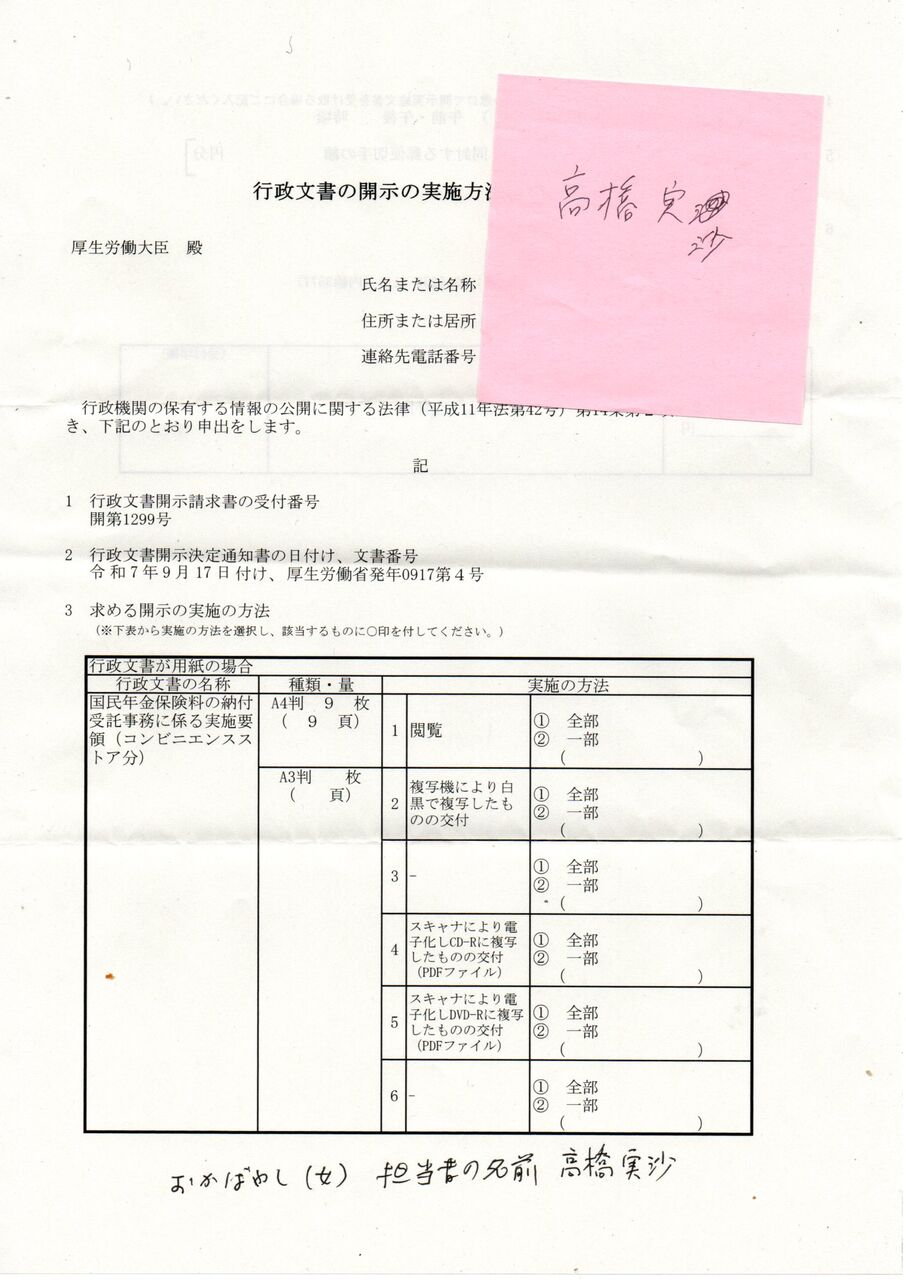 行政文書の開示の実施方法
高橋 実
沙
厚生労働大臣 殿
氏名または名称
住所または居所
連絡先電話番号
行政機関の保有する情報の公開に関する法律(平成11年法第42号)第14条第2項
き、下記のとおり申出をします。
記
1 行政文書開示請求書の受付番号
開第1299号
2 行政文書開示決定通知書の日付け、文書番号
令和7年9月17日付け、厚生労働省発年0917第4号
3 求める開示の実施の方法
(※下表から実施の方法を選択し、該当するものに〇印を付してください。)
行政文書が用紙の場合
行政文書の名称 種類・量 実施の方法
国民年金保険料の納付
受託事務に係る実施要
領(コンビニエンスス
トア分)
A4判 9 枚
( 9 頁)
A3判 枚
( 頁)
1 閲覧
① 全部
② 一部
( )
2 複写機により白
黒で複写したも
のの交付
① 全部
② 一部
( )
3 -
① 全部
② 一部
( )
4 スキャナにより電
子化しCD-Rに複写
したものの交付
(PDFファイル)
① 全部
② 一部
( )
5 スキャナにより電
子化しDVD-Rに複写
したものの交付
(PDFファイル)
① 全部
② 一部
( )
6 -
① 全部
② 一部
( )
おかばやし(女) 担当者の名前 高橋実沙